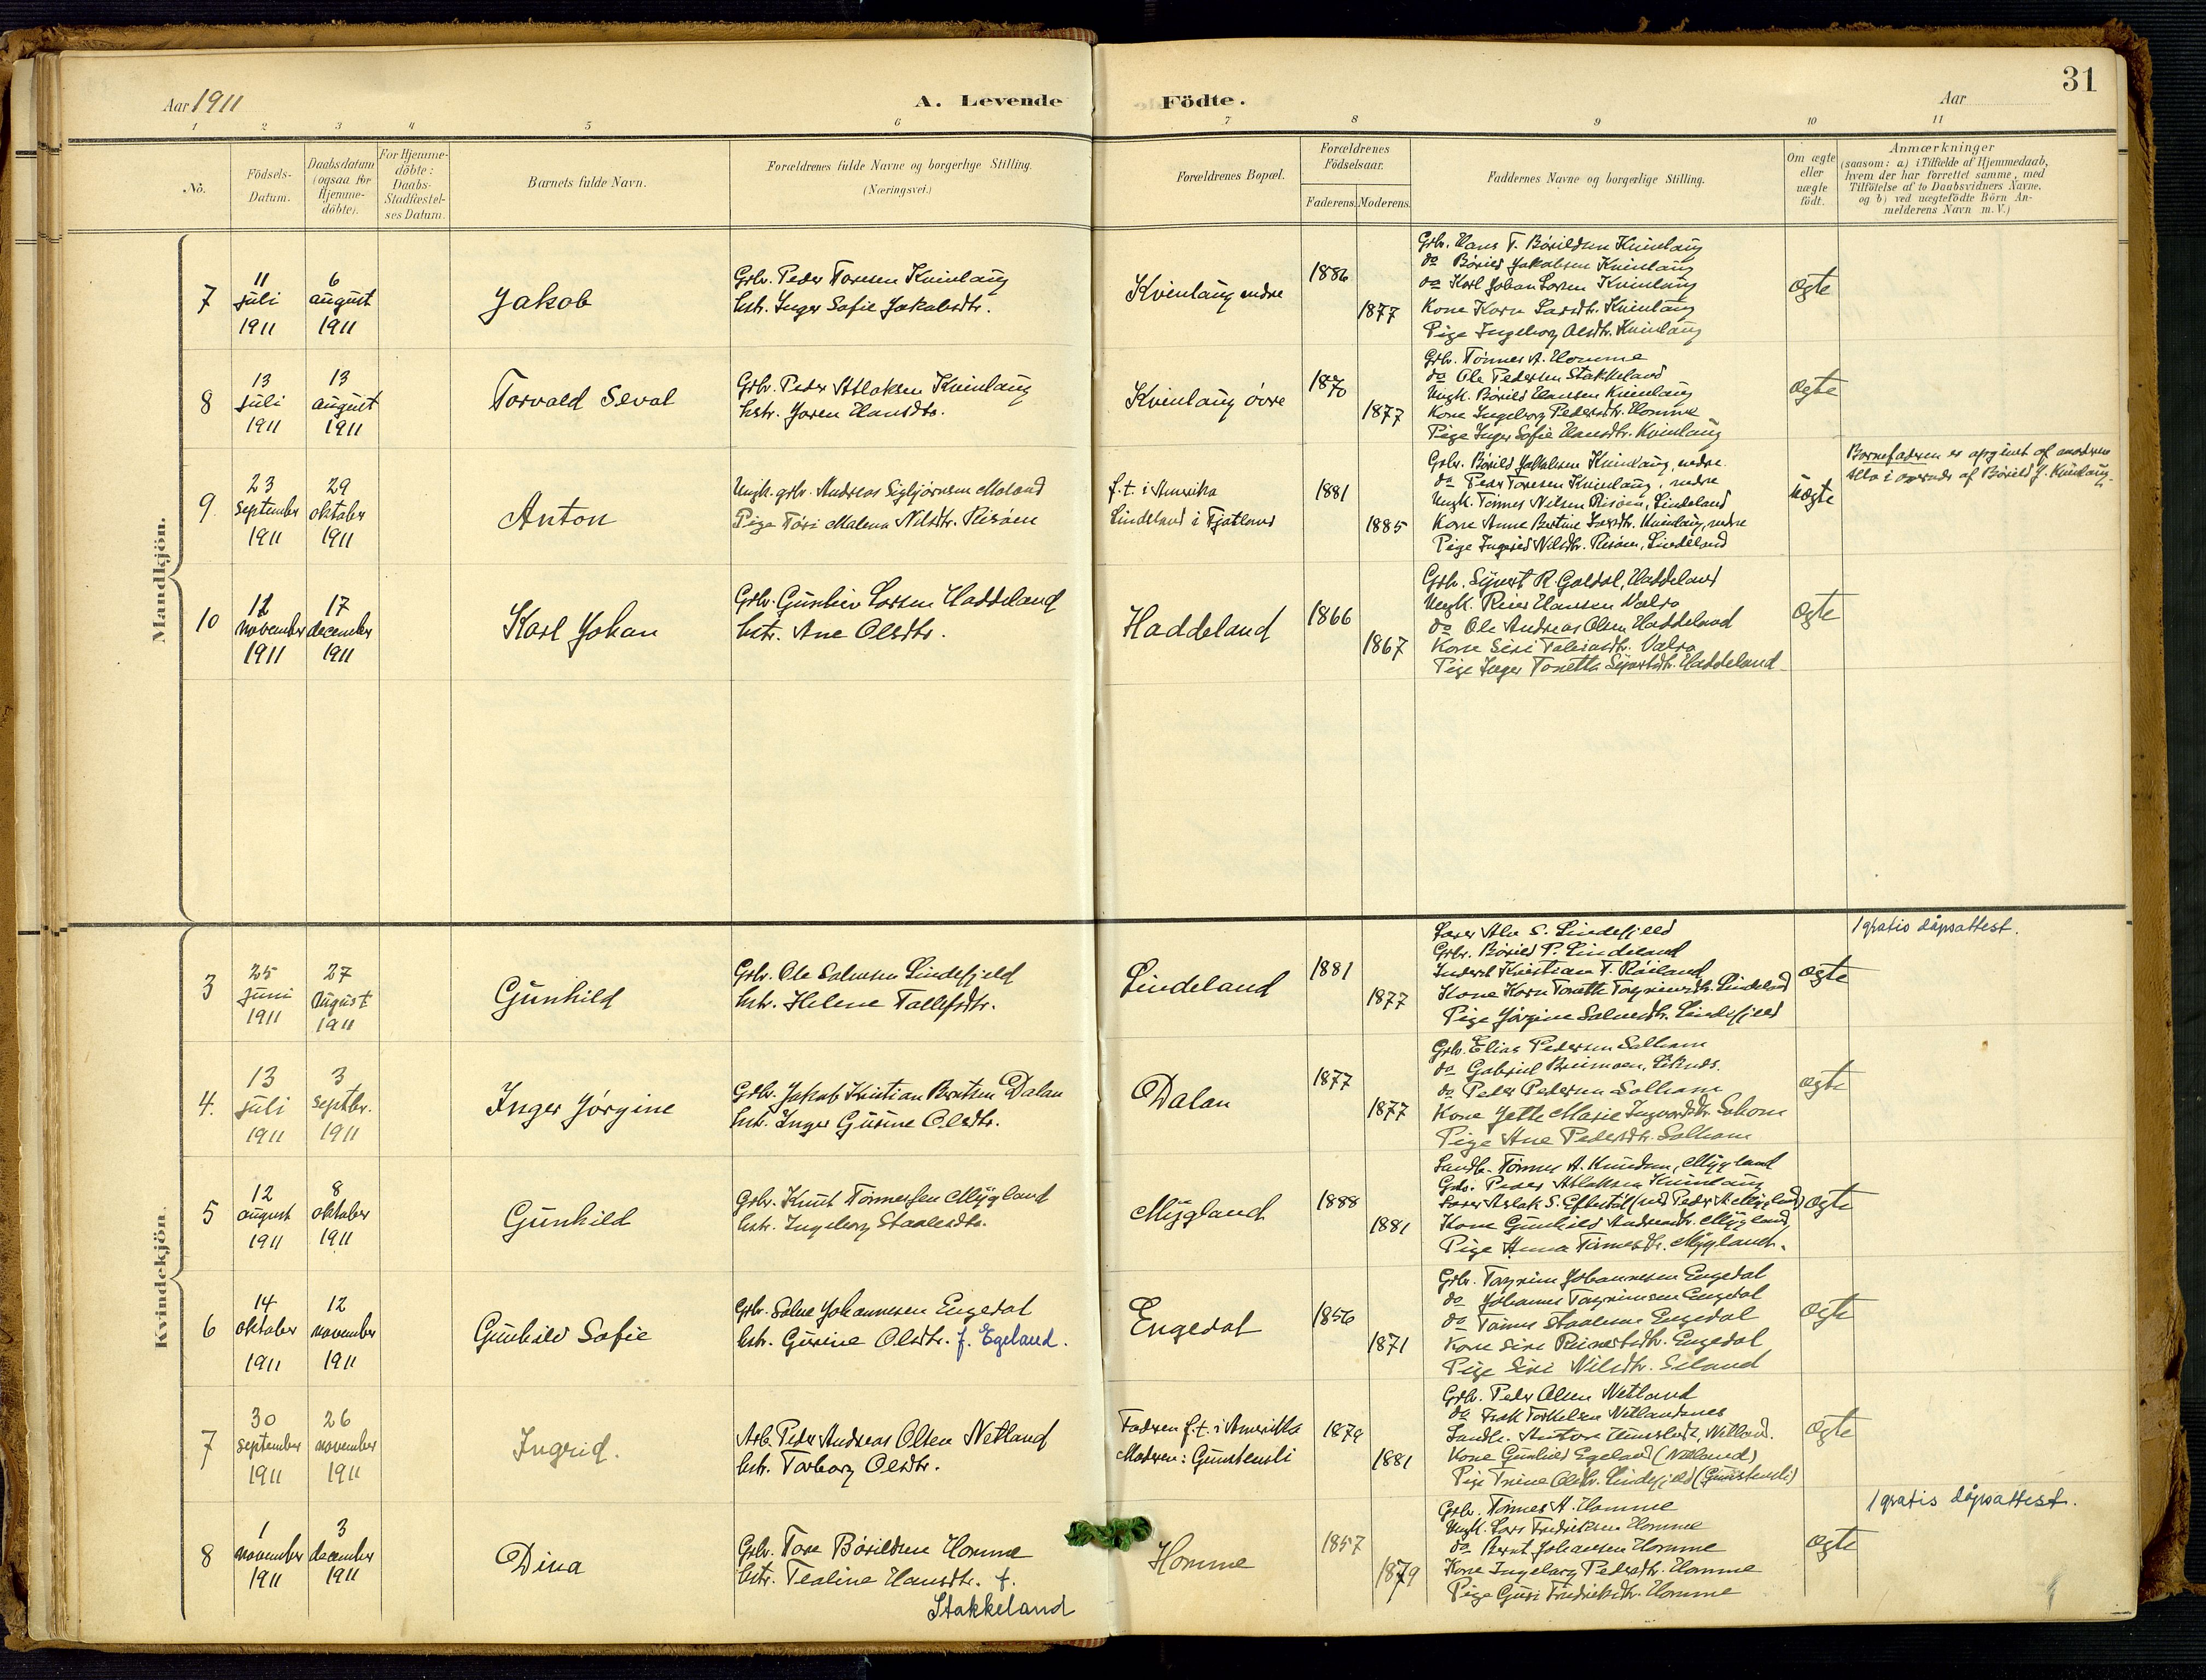 Aar 1911
A. Levende Födte.
Aar
31
1 2 3 4 5 6 7 8 9 10 11
No.
Födsels-
Datum.
Daabsdatum
(ogsaa for
Hjemme-
döbte).
For Hjemme-
döbte:
Daabs-
Stadfæstel-
ses Datum.
Barnets fulde Navn.
Forældrenes fulde Navne og borgerlige Stilling.
(Næringsvei.)
Forældrenes Bopæl.
Forældrenes
Födselsaar.
Faderens. Moderens.
Faddernes Navne og borgerlige Stilling.
Om ægte
eller
uægte
födt.
Anmærkninger
(saasom: a) i Tilfælde af Hjemmedaab,
hvem der har forrettet samme, med
Tilföielse af to Daabsvidners Navne,
og b) ved uægtefödte Börn An-
melderens Navn m. V.)
Mandkjön.
7
11
juli
1911
6
august
1911
Jakob
Grbr. Peder Toresen Kvinlaug
hstr. Inger Sofie Jakobsdtr.
Kvinlaug nedre
1886
1877
Grbr. Hans T. Börildsen Kvinlaug
do Böril Jakobsen Kvinlaug
do Karl Johan Larsen Kvinlaug
Kone Karn Larsdtr. Kvinlaug
Pige Ingeborg Olsdtr. Kvinlaug
Ægte
8
13
juli
1911
13
august
1911
Torvald Seval
Grbr. Peder Atlaksen Kvinlaug
hstr. Jaren Hansdtr.
Kvinlaug övre
1870
1877
Grbr. Tönnes A. Homme
do Ole Pedersen Stakkeland
Ungk. Börild Hansen Kvinlaug
Kone Ingeborg Pedersdtr. Homme
Pige Inger Sofie Hansdtr. Kvinlaug
Ægte
9.
23
september
1911
29
oktober
1911
Anton
Ungk. grbr. Andreas Sigbjörnsen Moland
Pige Töri Malena Nilsdtr. Risöen
f.t. i Amerika
Lindeland i Fjotland
1881
1885
Grbr. Börild Jakobsen Kvinlaug, nedre.
do Peder Toresen Kvinlaug, nedre
Ungk. Tönnes Nilsen Risöen, Lindeland
Kone Anne Bertine Larsdtr. Kvinlaug, nedre
Pige Ingerid Nilsdtr. Risöen, Lindeland
Uægte
Barnefaderen er opgivet af moderen
af Börild J. Kvinlaug.
10
12
november
1911
17
december
1911
Karl Johan
Grbr. Gunder Larsen Haddeland
hstr. Ane Olsdtr.
Haddeland
1866
1867
Grbr. Syvert R. Galdal, Haddeland
Ungk. Reier Hansen Valra
do Ole Andreas Olsen Haddeland
Kone Siri Tobiasdtr. Valra
Pige Inger Tonette Syvertsdtr. Haddeland
Ægte
Kvindekjön.
3
25
juni
1911
27
August
1911
Gunhild
Grbr. Ole Salvesen Lindefjeld
hstr. Helene Tallefsdtr.
Lindeland
1881
1877
Lærer Alv S. Lindefjeld
Grbr. Börild P. Lindeland
Inderst Kristian T. Röiland
Kone Karn Tonette Torgrimsdtr. Lindeland
Pige Jörgine Salvesdtr. Lindefjeld
Ægte
1 gratis dåpsattest.
4.
13
juli
1911
3
septbr.
1911
Inger Jörgine
Grbr. Jakob Kristian Berntsen Dalan
hstr. Inger Gurine Olsdtr.
Dalan
1877
1877
Grbr. Elias Pedersen Salhom
do Gabriel Breimoen, Eikns.
do Peder Pedersen Solhom
Kone Jette Marie Ingvardsdtr. Sohom
Pige Ane Pedersdtr. Solhom
Ægte
5
12
august
1911
8
oktober
1911
Gunhild
Grbr. Knut Tönnessen Mygland
hstr. Ingeborg Staalesdtr.
Mygland
1888
1881
Landh. Tönnes A. Knudsen, Mygland
Grbr. Peder Atlaksen Kvinlaug
Lærer Aslak S. Eftestöl (ved Peder A. Mygland)
Kone Gunhild Andreasdtr. Mygland
Pige Anna Tönnesdtr. Mygland.
Ægte
6
14
oktober
1911
12
november
1911
Gunhild Sofie
Grbr. Salve Johannesen Engedal
hstr. Gurine Olsdtr. f. Egeland.
Engedal
1856
1871
Grbr. Torgrim Johannesen Engedal
do Johannes Torgrimsen Engedal
do Tönnes Staalesen Engedal
Kone Siri Reinertsdtr. Engedal
Pige Siri Nilsdtr. Seland
Ægte
7
30
september
1911
26
november
1911
Ingrid.
Arb. Peder Andreas Olsen Netland
hstr. Torborg Olsdtr.
Faderen f.t. i Amerika
Moderen: Gunstensli
1879
1881
Grbr. Peder Olsen Netland
do Isak Torkelsen Netlandsnes
Landh. Anton Netland.
Kone Gunhild Egeland (Netland)
Pige Trine Olsdtr. Lindefjeld (Gunstensli)
Ægte
8
1
november
1911
3
december
1911
Dina
Grbr. Tore Börildsen Homme
hstr. Tealine Hansdtr. f.
Stakkeland
Homme
1857
1879
Grbr. Tönnes A. Homme
Ungk. Lars Fredriksen Homme
do Bernt Johansen Homme
Kone Ingeborg Pedersdtr. Homme
Pige Guri Fredriksdtr. Homme
Ægte
1 gratis dåpsattest.